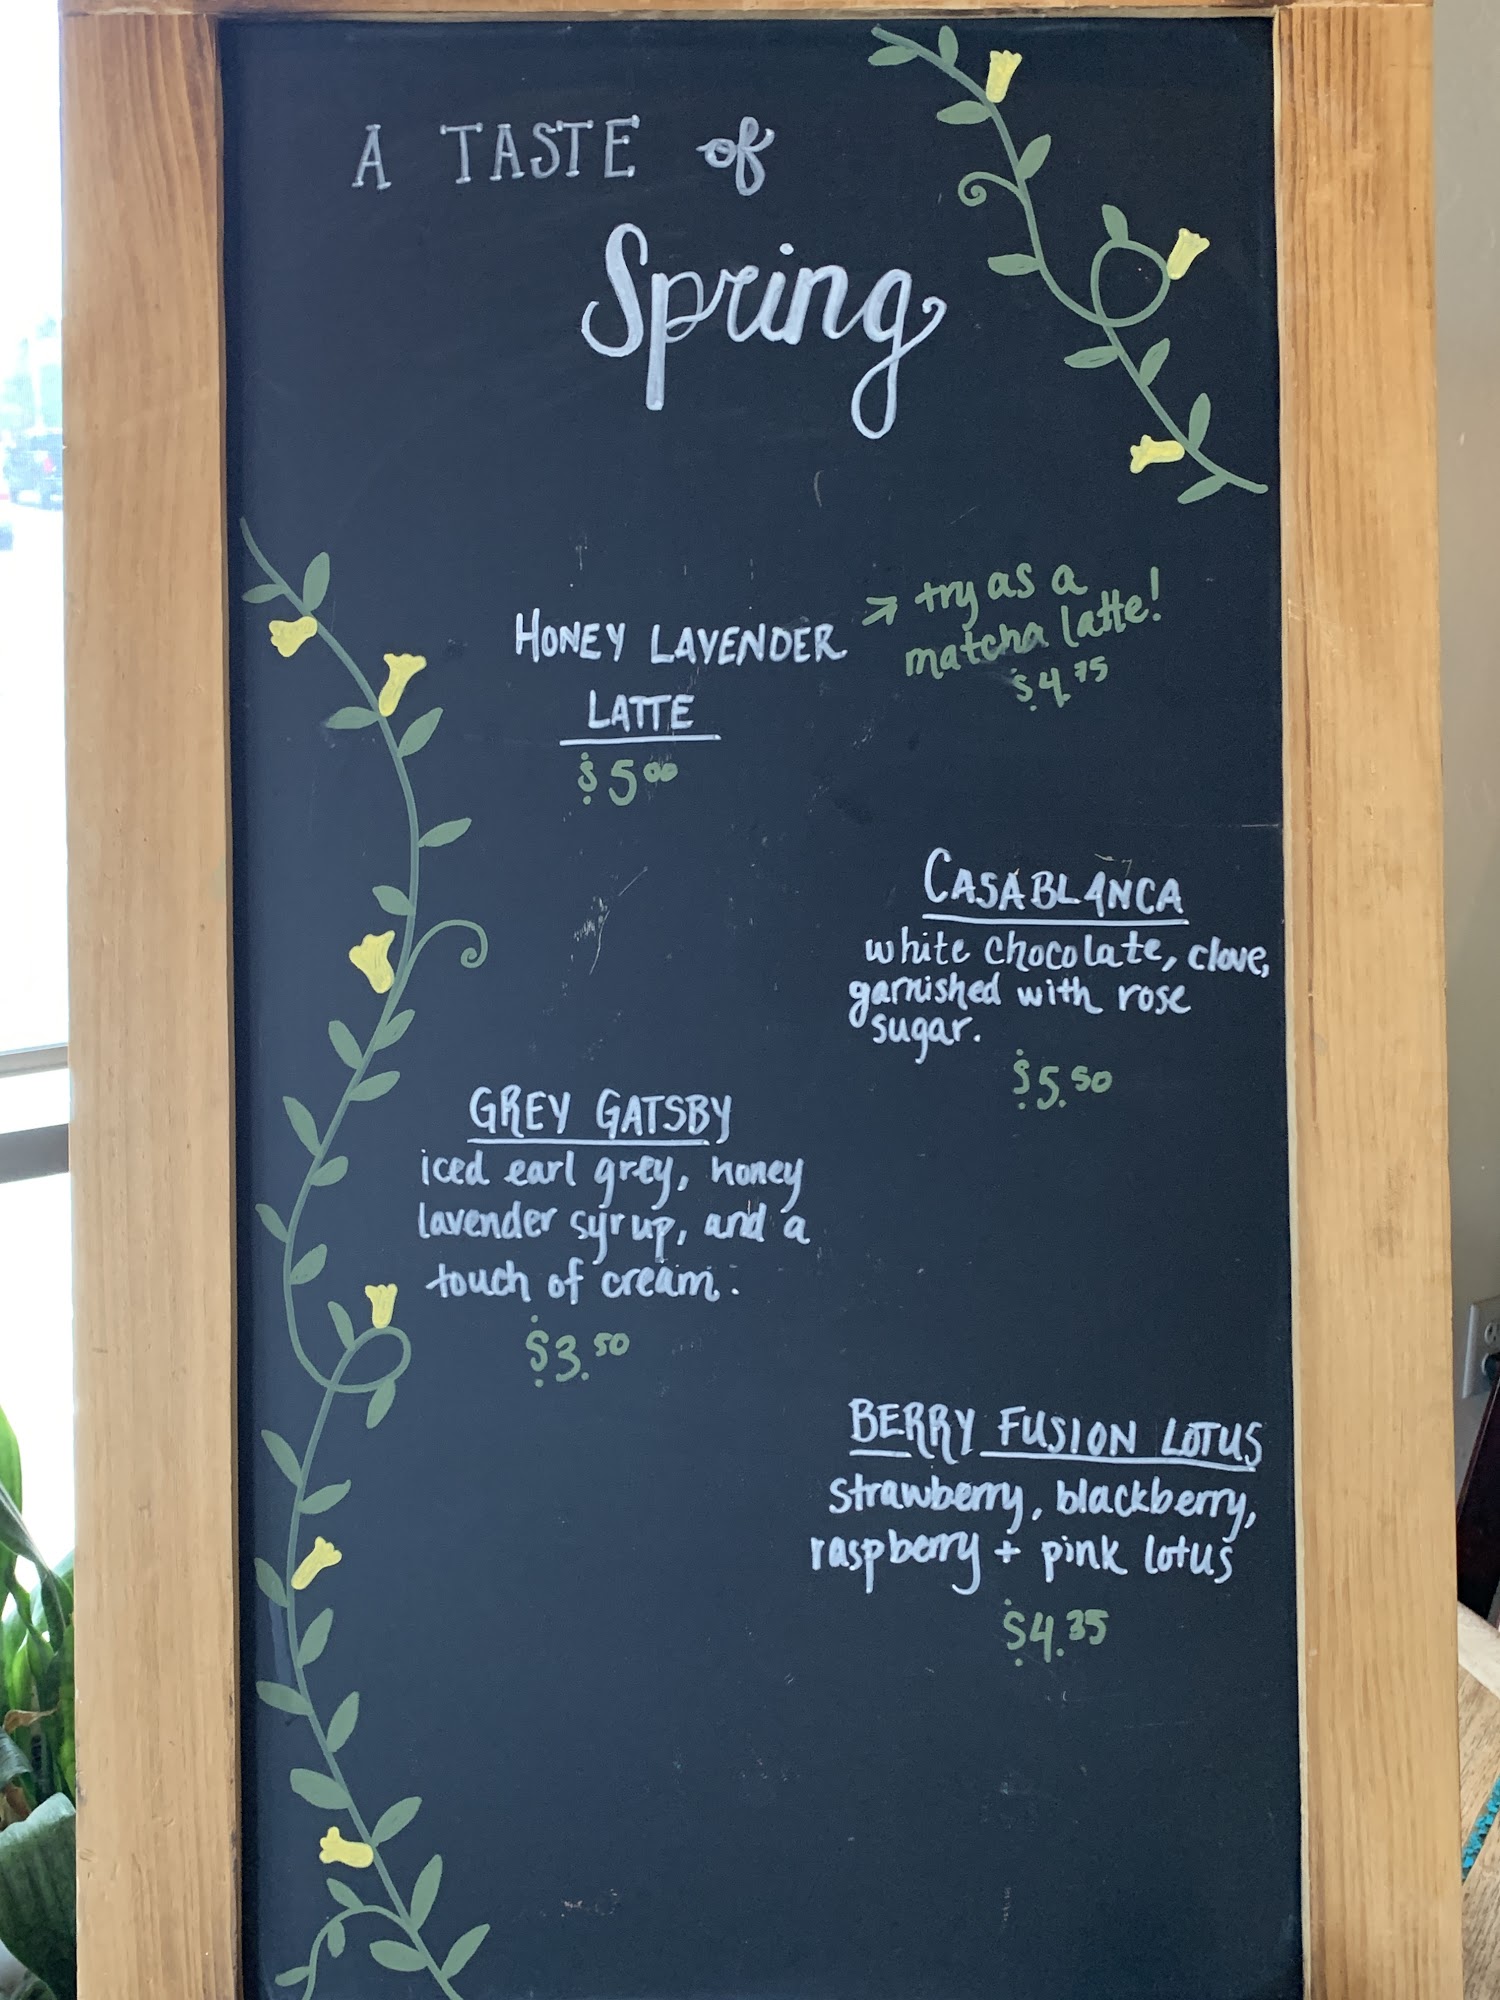 A TASTE of
Spring
HONEY LAVENDER
LATTE
$5.00
→ try as a
matcha latte!
$4.75
CASABLANCA
white chocolate, clove,
garnished with rose
sugar.
$5.50
GREY GATSBY
iced earl grey, honey
lavender syrup, and a
touch of cream.
$3.50
BERRY FUSION LOTUS
strawberry, blackberry,
raspberry + pink lotus
$4.35